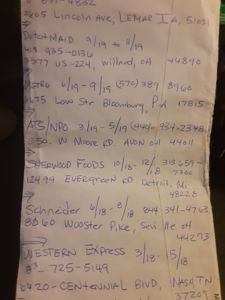 4832
Lincoln Ave, LEMAR IA, 51031
DutchMAID 9/19 to 11/19
935-0136
US-224, Willard, OH 44890
METRO 6/19 - 9/19 (570) 389 8960
Low Str Bloomburg, PA 17815
3/19 - 5/19 (440) 934-2348
W Moore RD. AVON OH 44011
SHERWOOD FOODS 10/18 - 12/18 313 659-7300
12499 EVERGREEN RD Detroit, MI
48228
Schneider 6/18 - 8/18 844 341-4763
Wooster Pike, Seville OH
44273
WESTERN Express 3/18 - 5/18
725-5149
CENTENNIAL BLVD, NASH, TN
37209